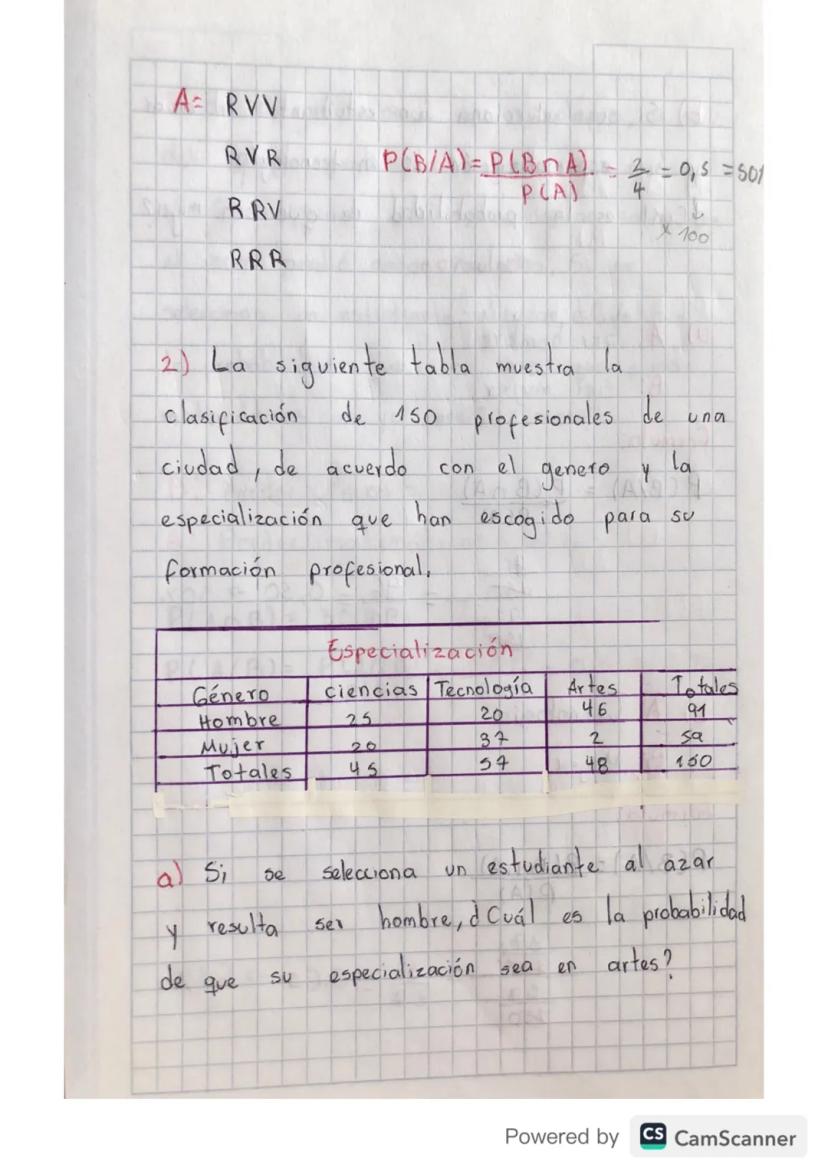 A= RVV
RVR
RRV
RRR
P(B/A)= P(B∩A) / P(A) = 2/4 = 0,5 = 50%
↓
x 100
2) La siguiente tabla muestra la
clasificación de 150 profesionales de una
ciudad, de acuerdo con el genero y la
especialización que han escogido para su
formación profesional.
Especialización
Género ciencias Tecnología Artes Totales
Hombre 25 20 46 91
Mujer 20 37 2 59
Totales 45 57 48 150
a) Si se selecciona un estudiante al azar
y resulta ser hombre, ¿Cuál es la probabilidad
de que su especialización sea en artes?
Powered by CS CamScanner